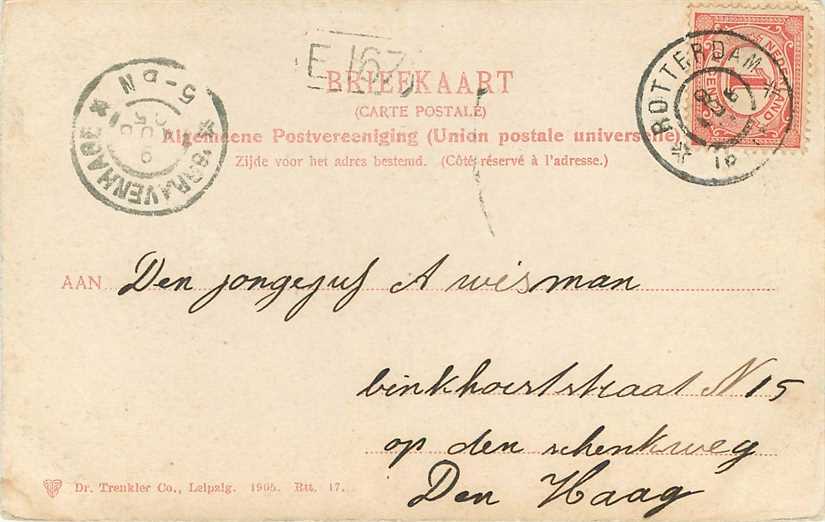 E 167
BRIEFKAART
(CARTE POSTALE)
Algemeene Postvereeniging (Union postale universelle)
Zijde voor het adres bestemd. (Côté réservé à l'adresse.)
ROTTERDAM
'SGRAVENHAGE
5-D N
AAN Den jongejuf A wisman
binkhorststraat N 15
op den schenkweg
Den Haag
Dr. Trenkler Co., Leipzig. 1905. Rtt. 17.